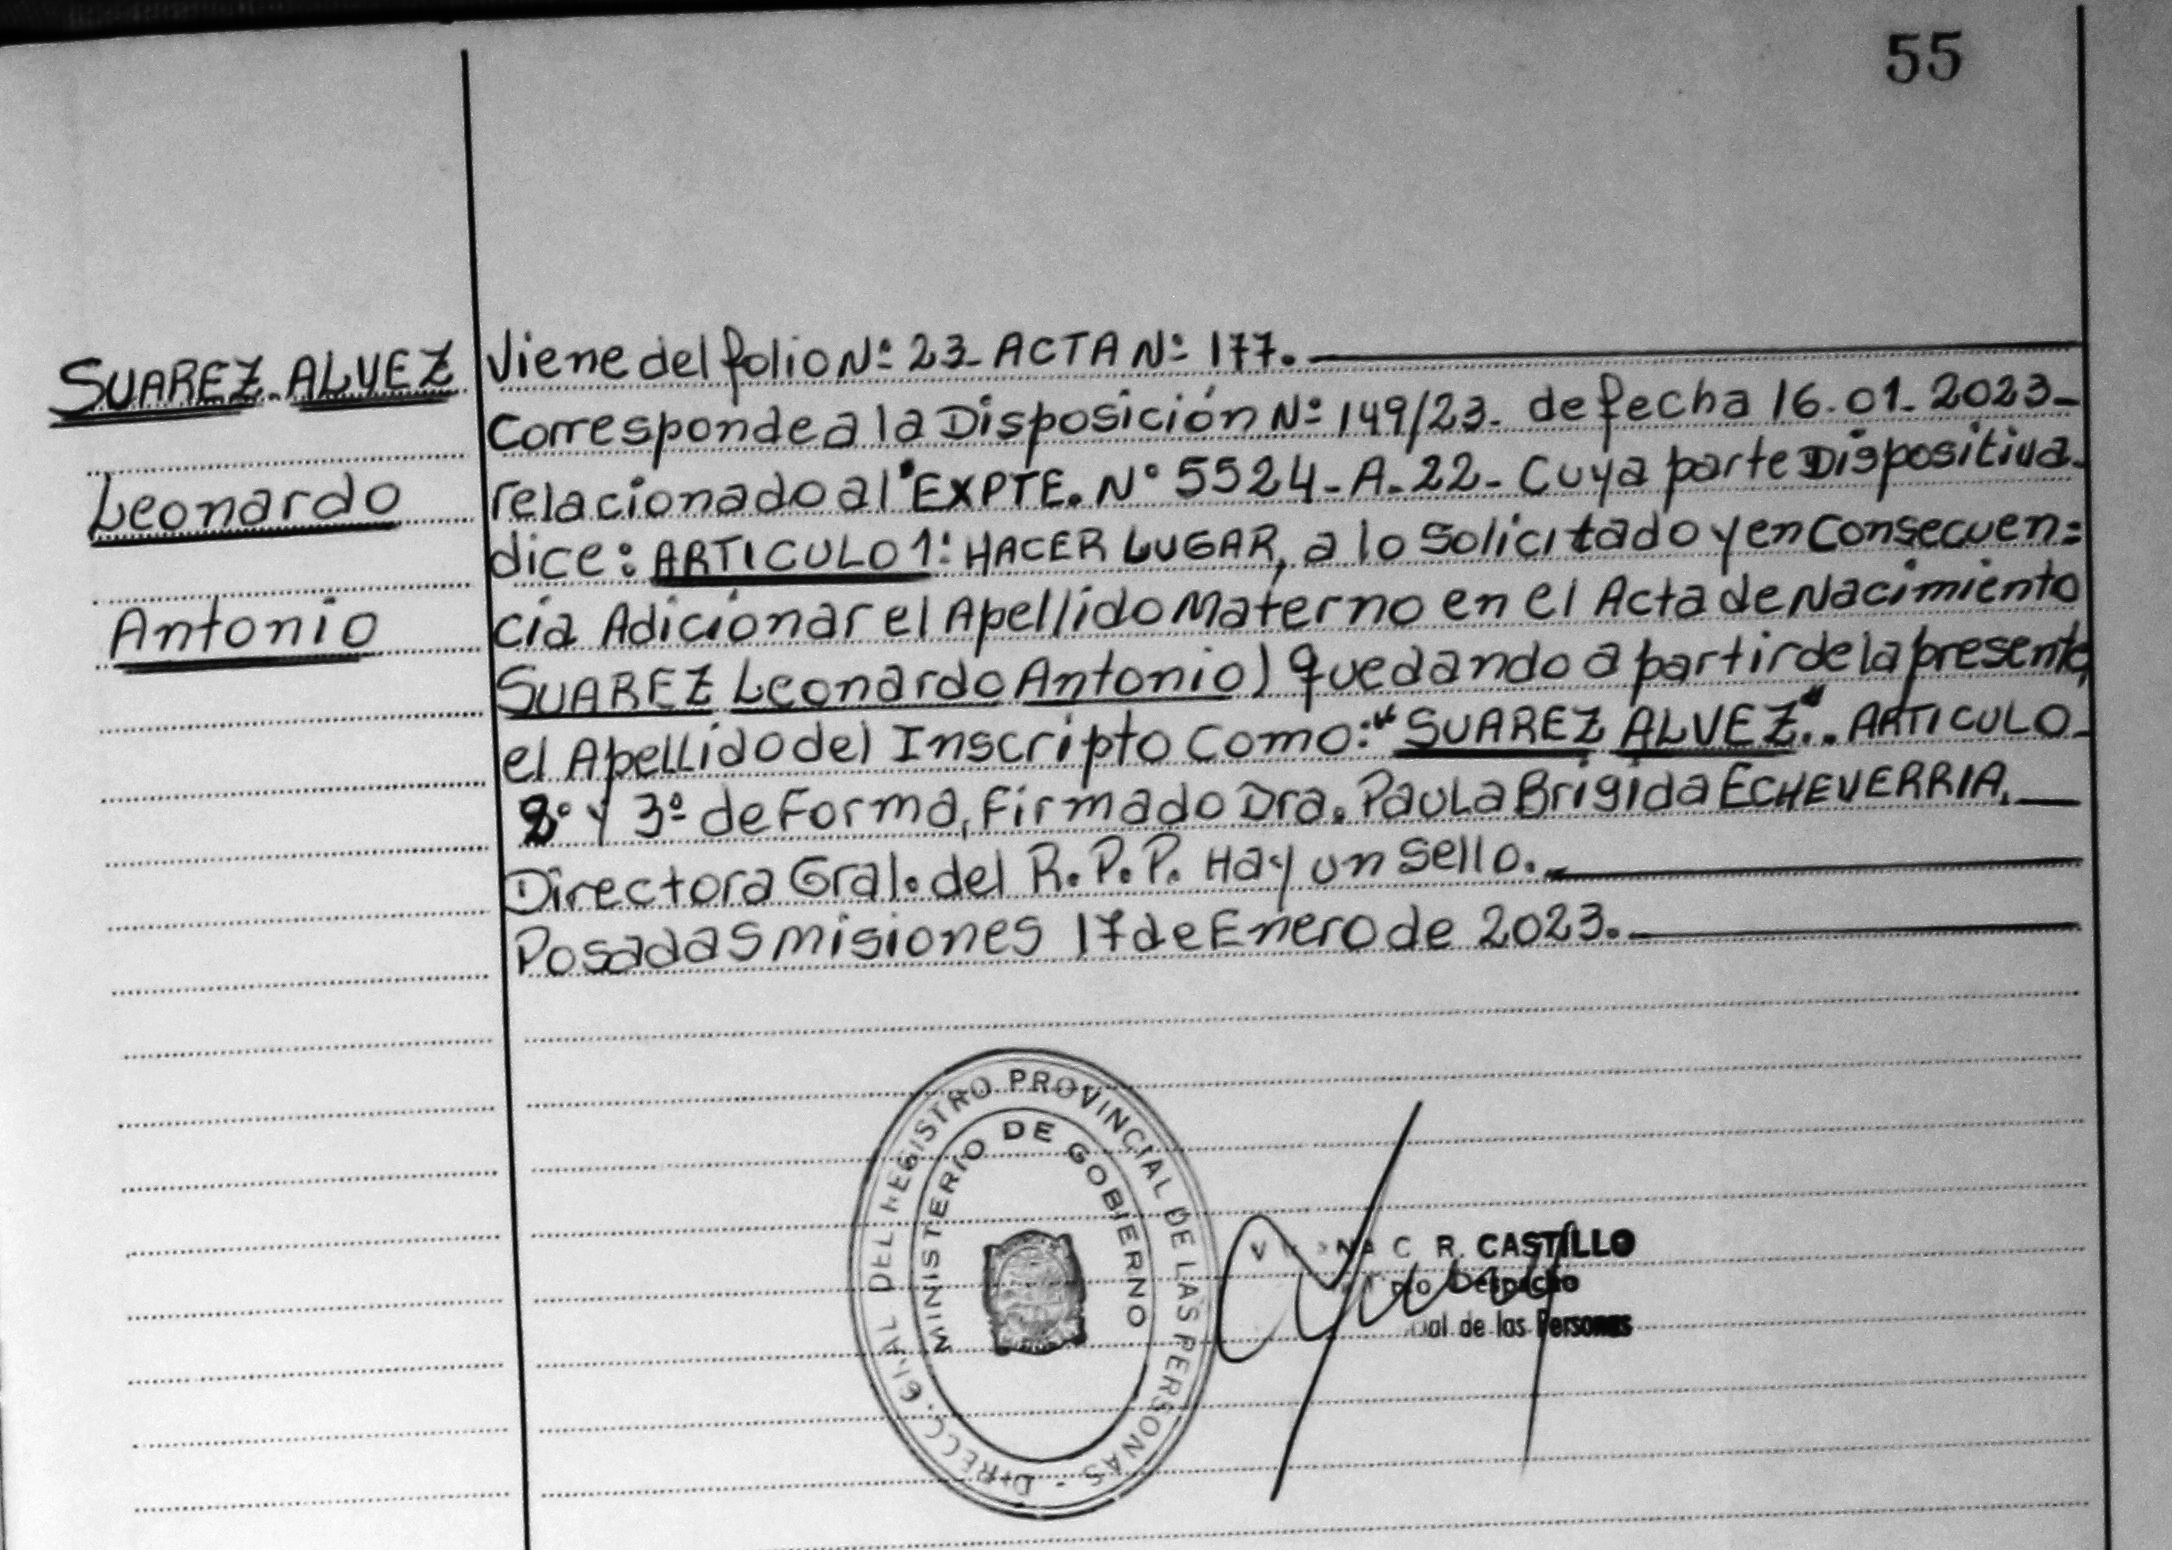 55
SUAREZ-ALVEZ
Leonardo
Antonio
Viene del folio Nº 23- ACTA Nº 177.
Corresponde a la Disposición Nº 149/23- de fecha 16-01-2023-
relacionado al "EXPTE. Nº 5524-A-22- Cuya parte Dispositiva.
dice: ARTICULO 1: HACER LUGAR, a lo Solicitado y en Consecuen=
cia Adicionar el Apellido Materno en el Acta de Nacimiento
SUAREZ Leonardo Antonio) quedando a partir de la presente,
el Apellido del Inscripto Como: "SUAREZ ALVEZ".. ARTICULO-
2º y 3º de Forma, Firmado Dra. Paula Brigida ECHEVERRIA.
Directora Gral. del R.P.P. Hay un Sello.
Posadas Misiones 17 de Enero de 2023.
DIRECC. GRAL DEL REGISTRO PROVINCIAL DE LAS PERSONAS -
MINISTERIO DE GOBIERNO
C. R. CASTILLO
Despacho
de las Personas